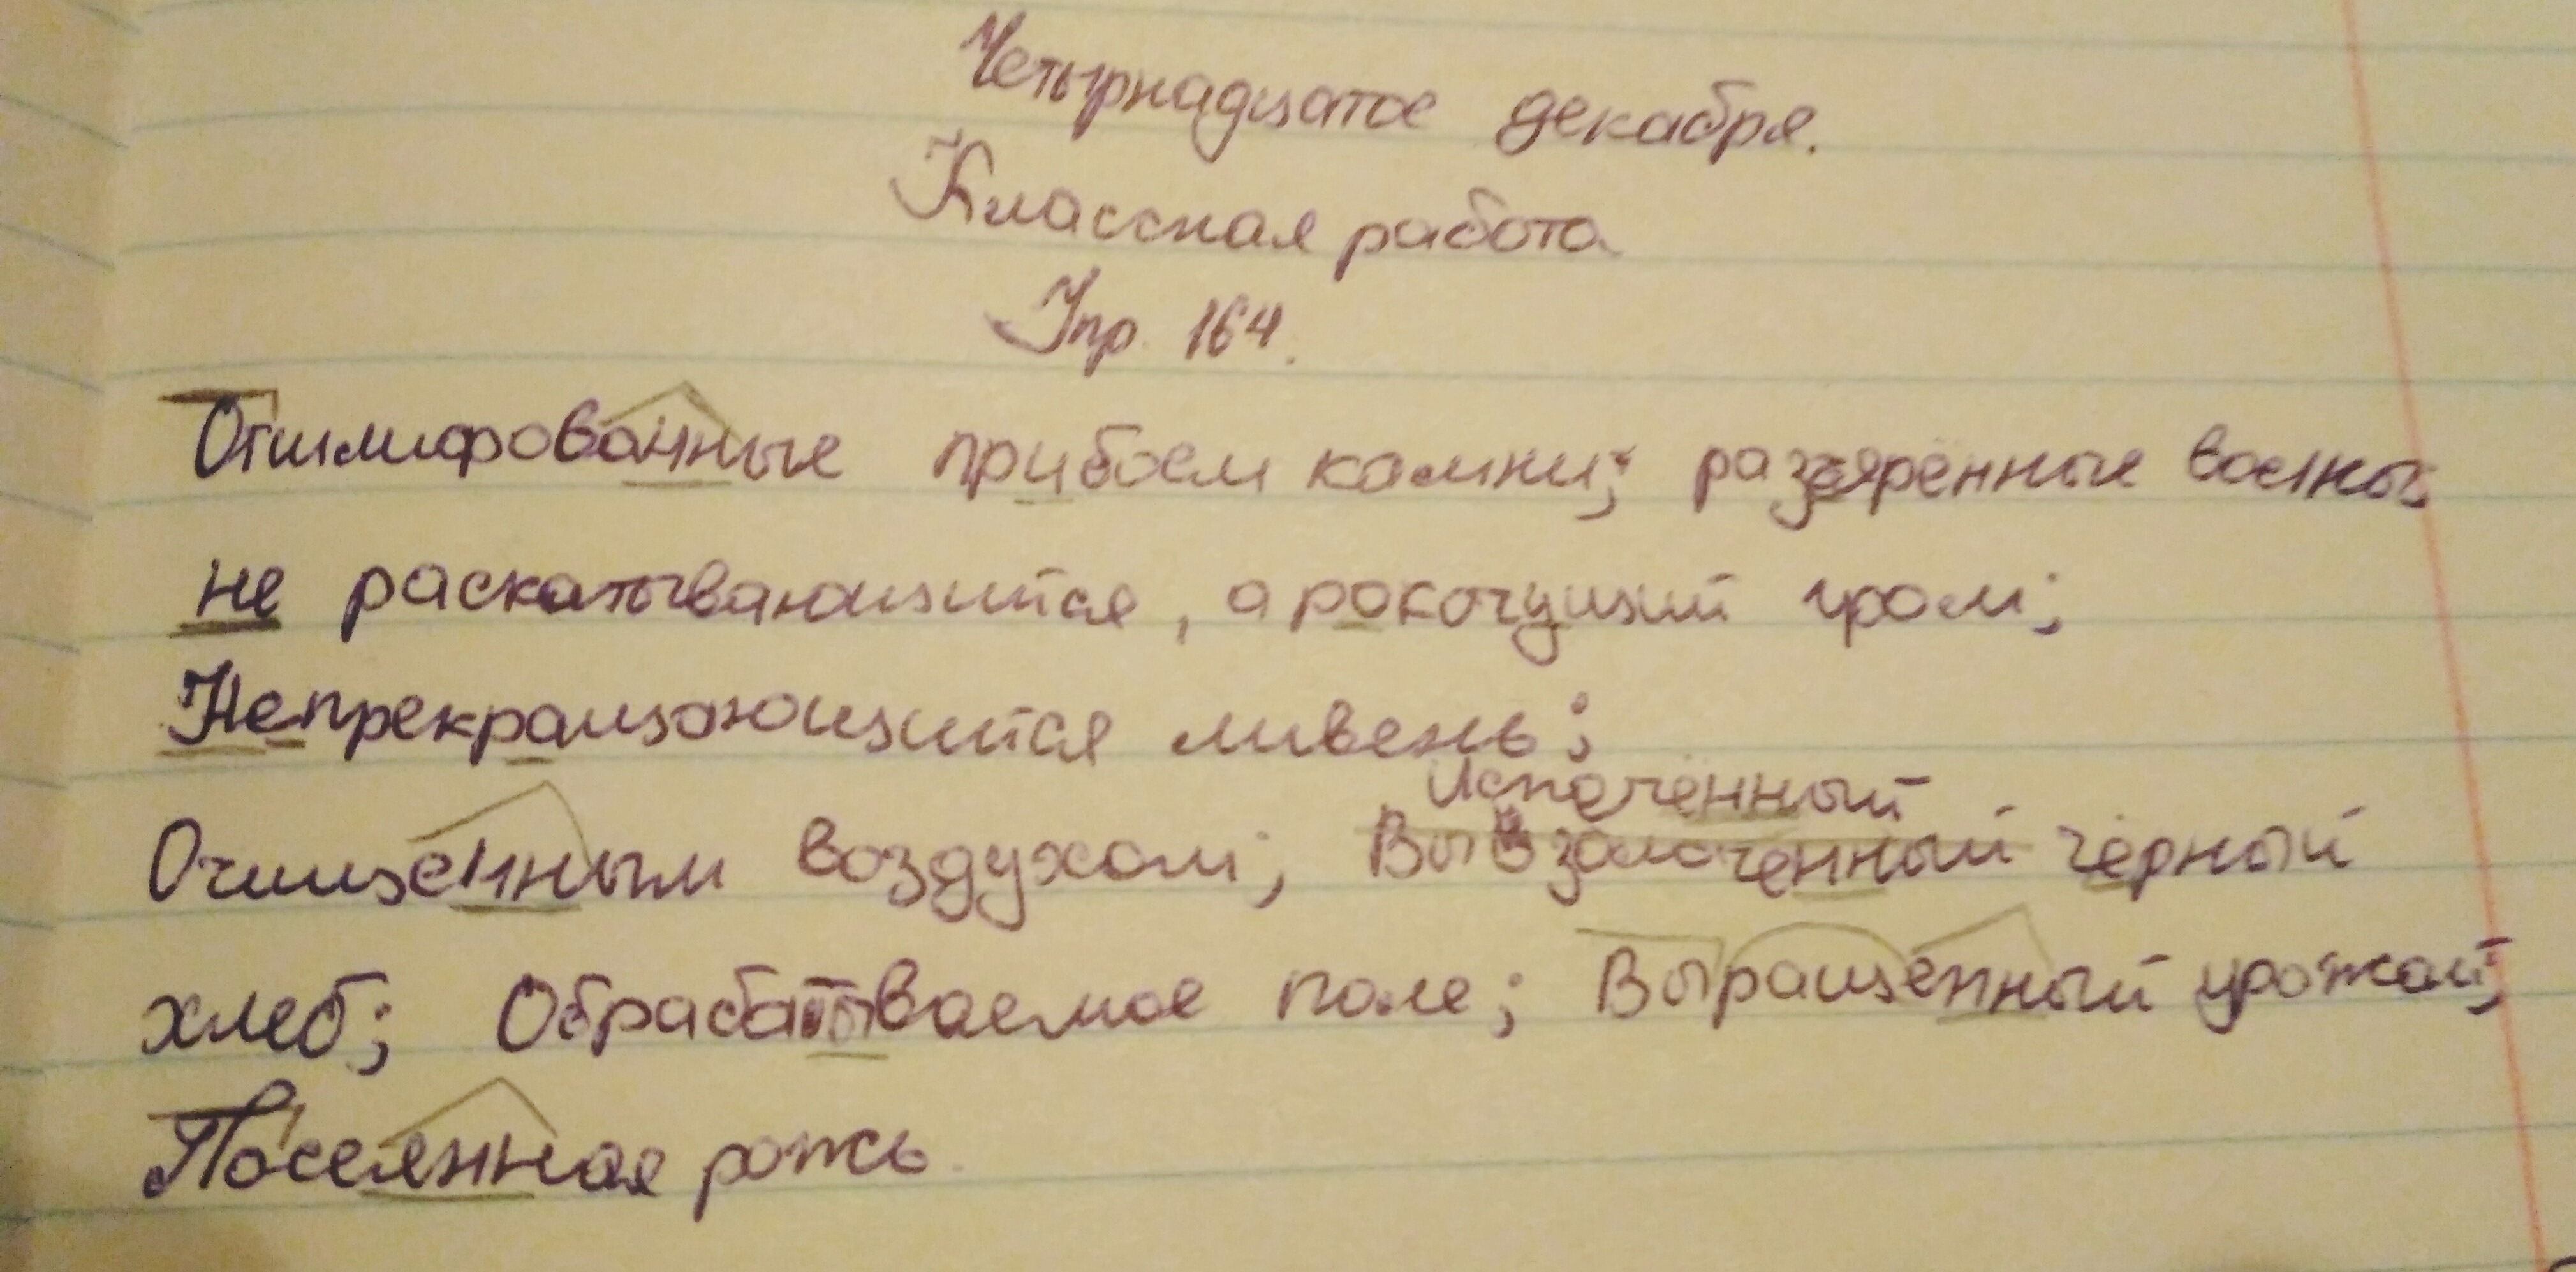 Четырнадцатое декабря.
Классная работа
Упр. 164.
Отшлифованные прибоем камни; разъярённые волны;
не раскатывающийся, а рокочущий гром;
Непрекращающийся ливень;
Испечённый
Очищенным воздухом; чёрный
хлеб; Обрабатываемое поле; Выращенный урожай;
Посеянная рожь.